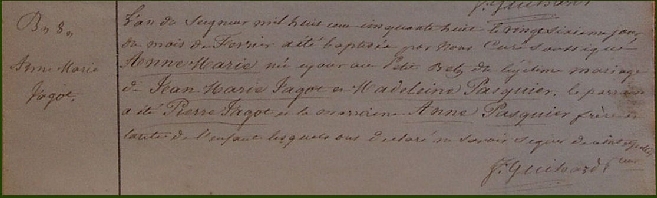 J. Guihard
B. 8.
Anne Marie
Jagot.
L'an du Seigneur mil huit cent cinquante huit le onzième jour
du mois de Fevrier a été baptisée par Nous Curé soussigné
Anne Marie née ce jour au Petit de légitime mariage
de Jean Marie Jagot et Madeleine Pasquier. le parrain
a été Pierre Jagot et la marraine Anne Pasquier frère et
tante de l'enfant lesquels ont déclaré ne savoir signer de ce
J. Guihard